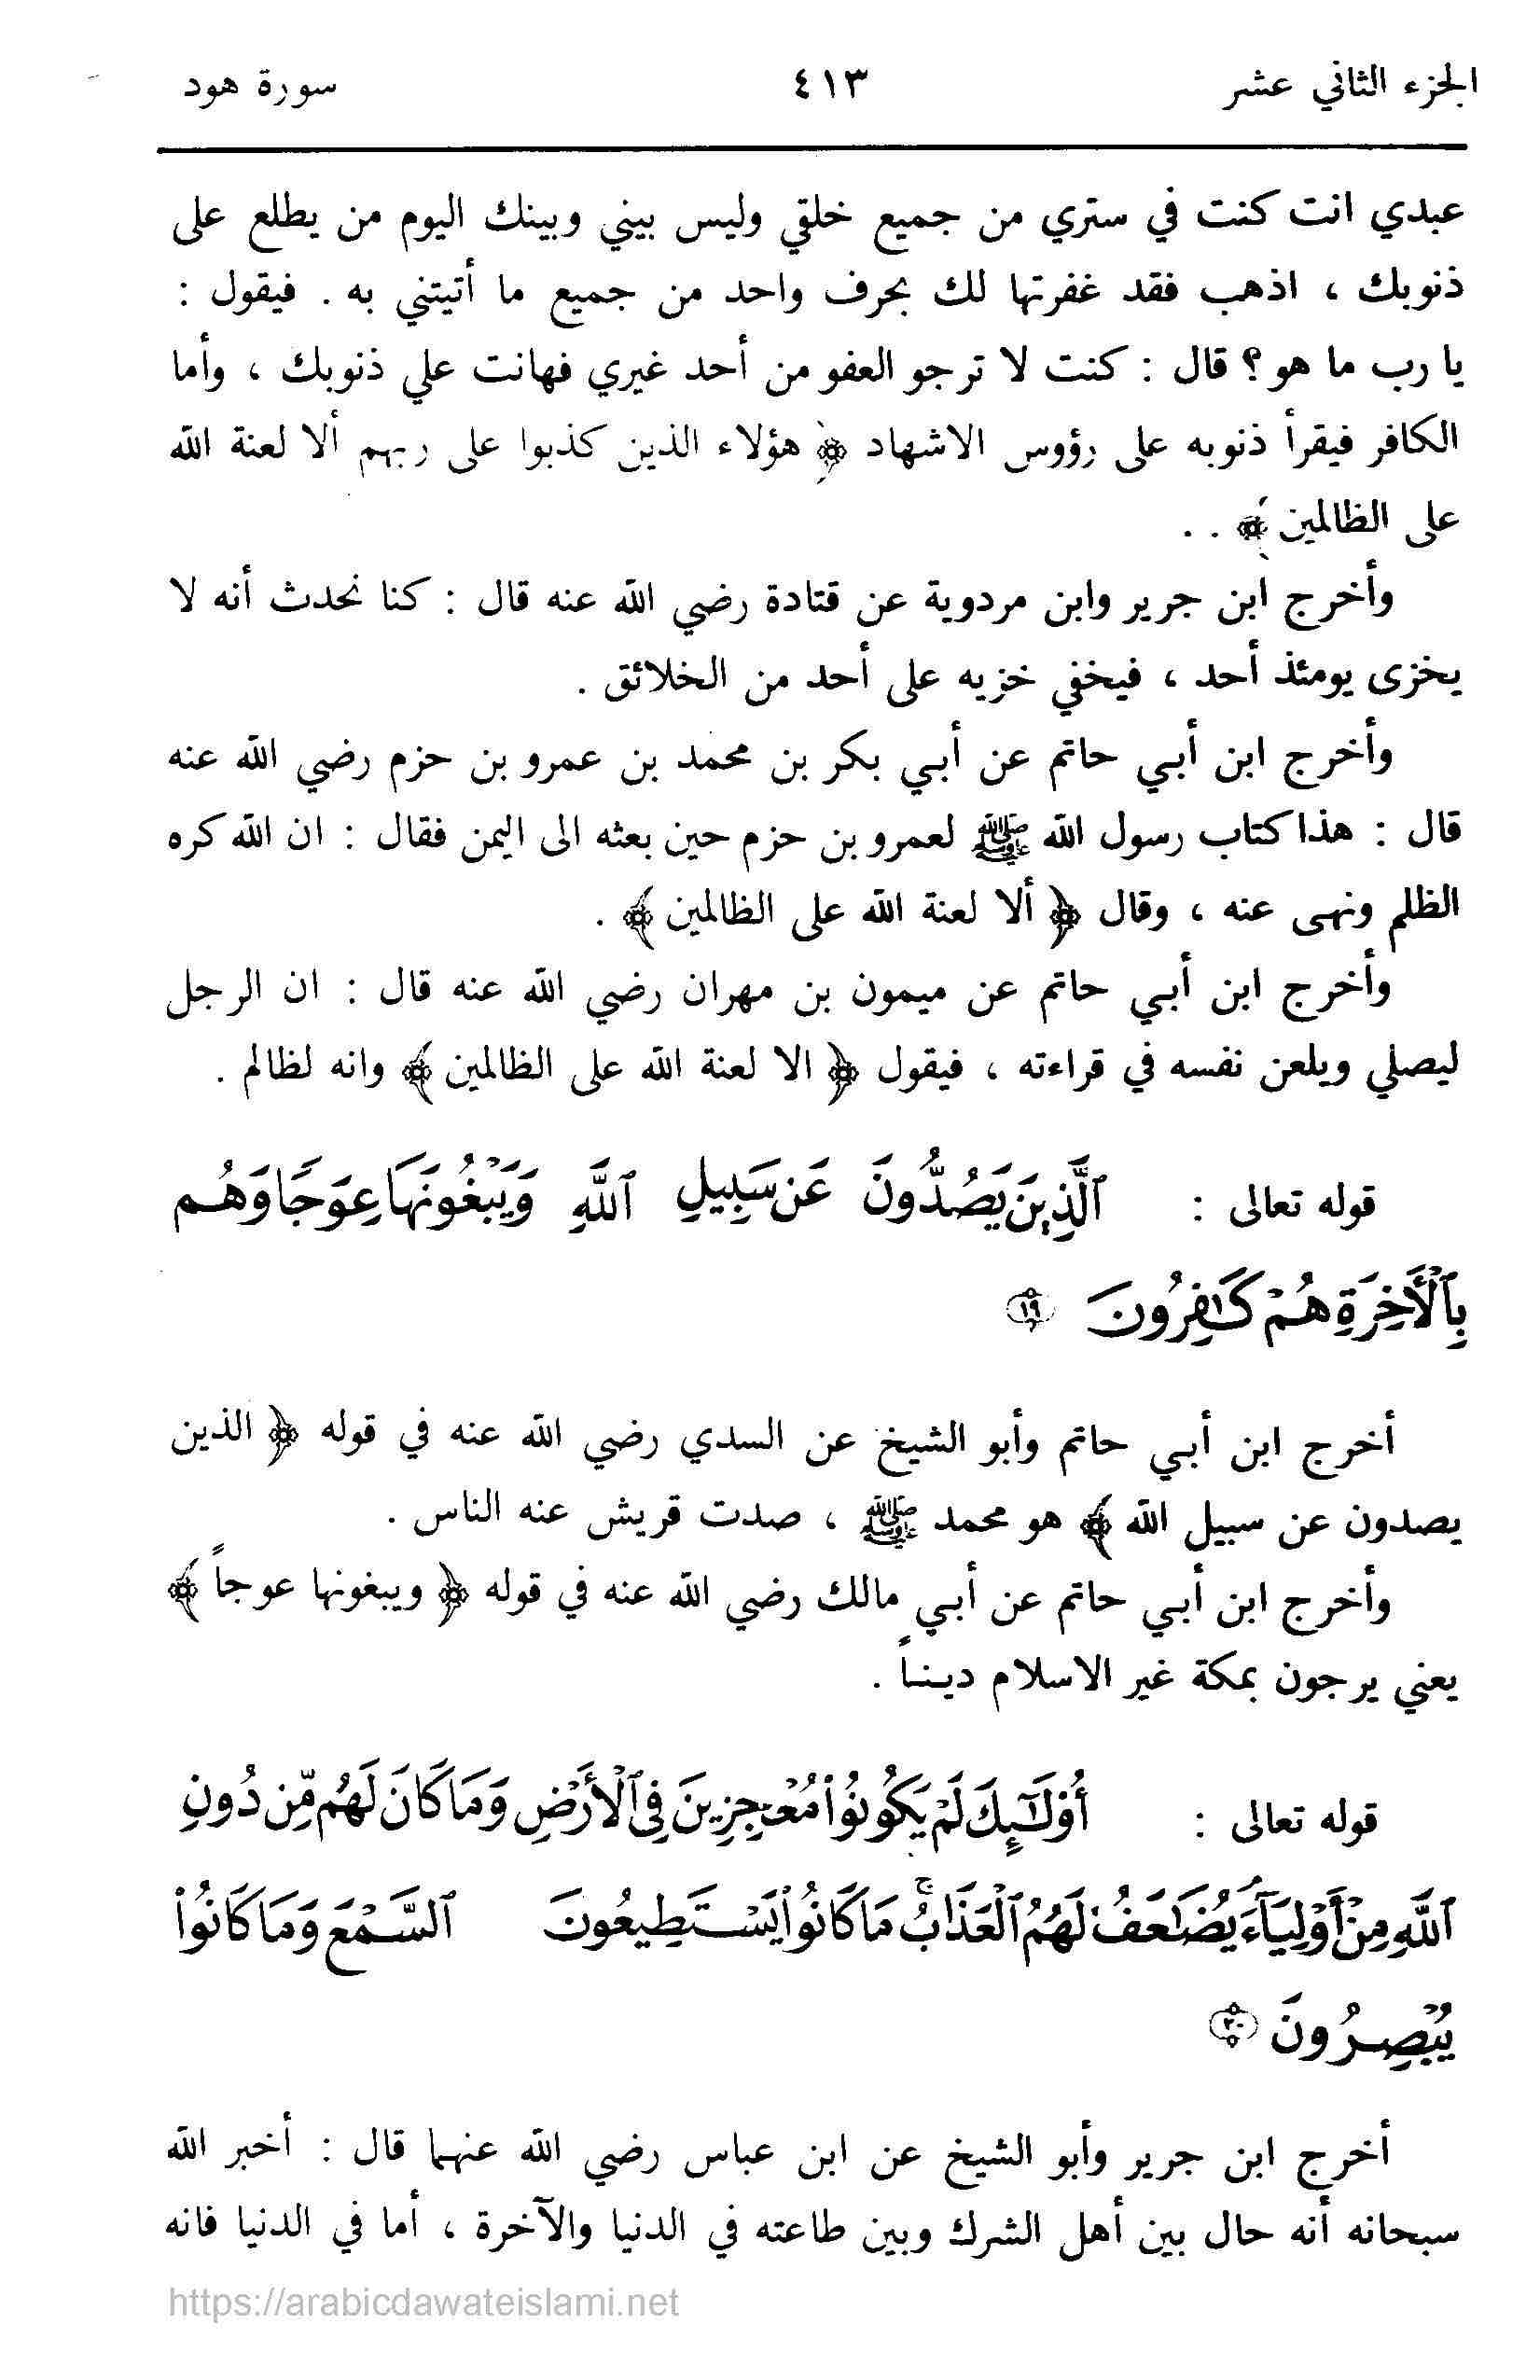 الجزء الثاني عشر ٤١٣ سورة هود
عبدي انت كنت في ستري من جميع خلقي وليس بيني وبينك اليوم من يطلع على
ذنوبك ، اذهب فقد غفرتها لك بحرف واحد من جميع ما أتيتني به . فيقول :
يا رب ما هو ؟ قال : كنت لا ترجو العفو من أحد غيري فهانت علي ذنوبك ، وأما
الكافر فيقرأ ذنوبه على رؤوس الاشهاد ﴿ هؤلاء الذين كذبوا على ربهم ألا لعنة الله
على الظالمين ﴾ . .
وأخرج ابن جرير وابن مردوية عن قتادة رضي الله عنه قال : كنا نحدث أنه لا
يخزى يومئذ أحد ، فيخفي خزيه على أحد من الخلائق .
وأخرج ابن أبي حاتم عن أبي بكر بن محمد بن عمرو بن حزم رضي الله عنه
قال : هذا كتاب رسول الله ﷺ لعمرو بن حزم حين بعثه الى اليمن فقال : ان الله كره
الظلم ونهى عنه ، وقال ﴿ ألا لعنة الله على الظالمين ﴾ .
وأخرج ابن أبي حاتم عن ميمون بن مهران رضي الله عنه قال : ان الرجل
ليصلي ويلعن نفسه في قراءته ، فيقول ﴿ الا لعنة الله على الظالمين ﴾ وانه لظالم .
قوله تعالى : ٱلَّذِينَ يَصُدُّونَ عَن سَبِيلِ ٱللَّهِ وَيَبْغُونَهَا عِوَجًا وَهُم
بِٱلْأَخِرَةِ هُمْ كَٰفِرُونَ ١٩
أخرج ابن أبي حاتم وأبو الشيخ عن السدي رضي الله عنه في قوله ﴿ الذين
يصدون عن سبيل الله ﴾ هو محمد ﷺ ، صدت قريش عنه الناس .
وأخرج ابن أبي حاتم عن أبي مالك رضي الله عنه في قوله ﴿ ويبغونها عوجاً ﴾
يعني يرجون بمكة غير الاسلام ديناً .
قوله تعالى : أُو۟لَٰٓئِكَ لَمْ يَكُونُوا۟ مُعْجِزِينَ فِى ٱلْأَرْضِ وَمَا كَانَ لَهُم مِّن دُونِ
ٱللَّهِ مِنْ أَوْلِيَآءَ يُضَٰعَفُ لَهُمُ ٱلْعَذَابُ ۚ مَا كَانُوا۟ يَسْتَطِيعُونَ ٱلسَّمْعَ وَمَا كَانُوا۟
يُبْصِرُونَ ٢٠
أخرج ابن جرير وأبو الشيخ عن ابن عباس رضي الله عنهما قال : أخبر الله
سبحانه أنه حال بين أهل الشرك وبين طاعته في الدنيا والآخرة ، أما في الدنيا فانه
https://arabicdawateislami.net